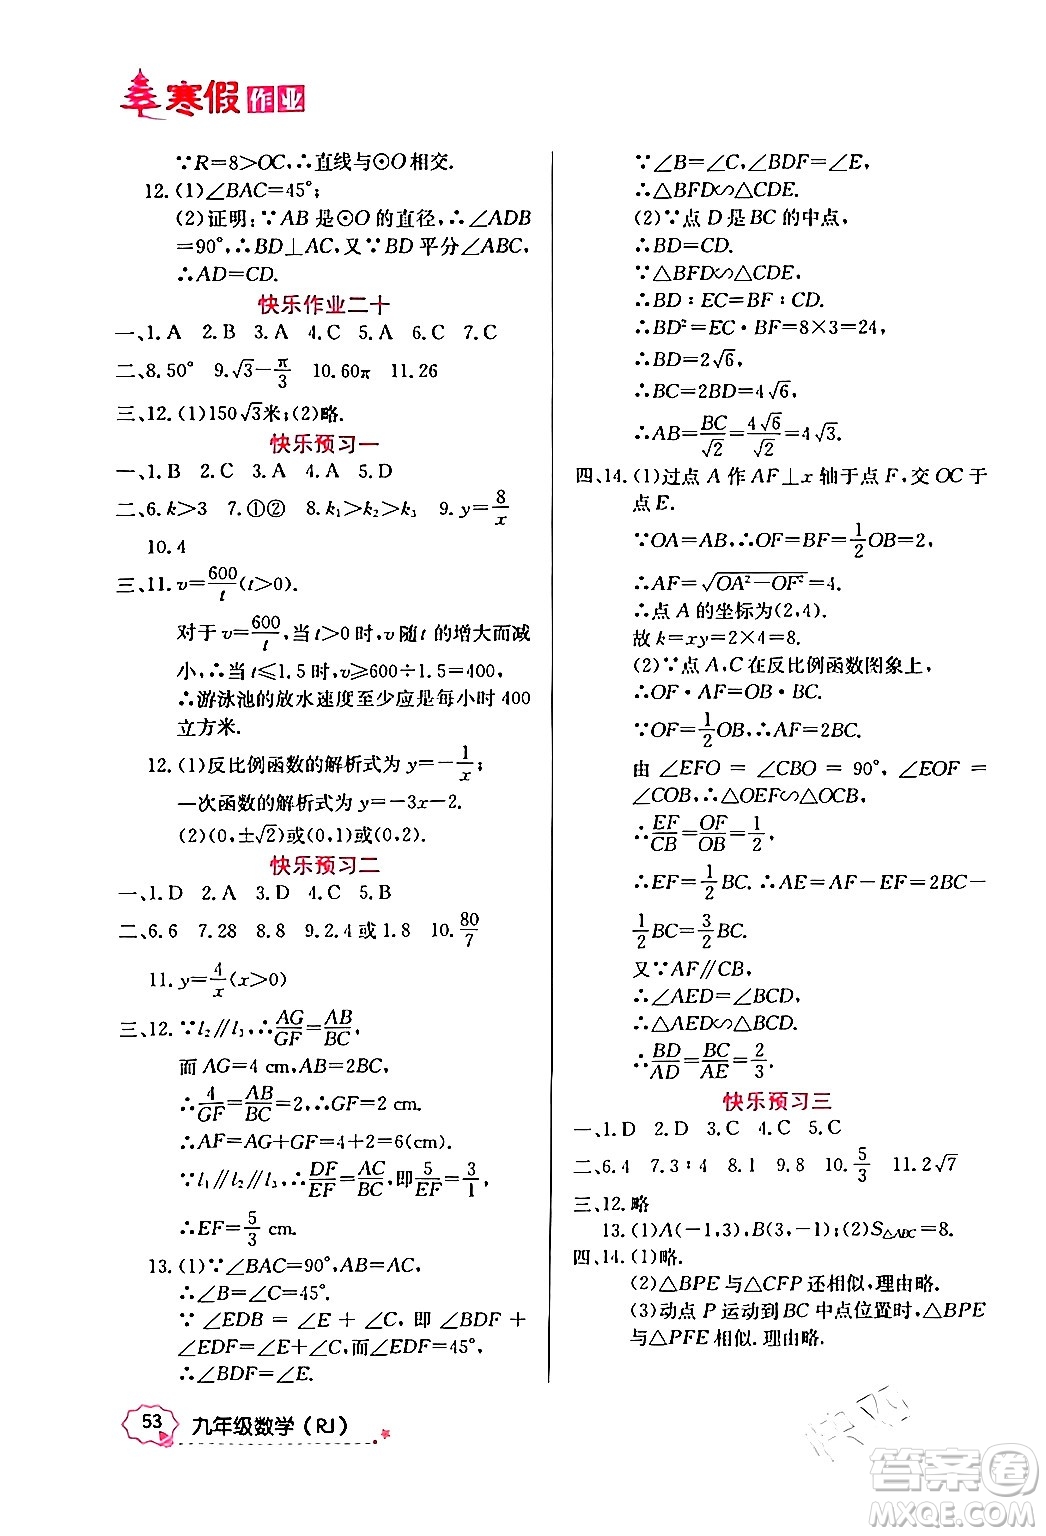 寒假作业
∵R=8>OC,∴直线与⊙O相交.
12.(1)∠BAC=45°;
(2)证明:∵AB是⊙O的直径,∴∠ADB
=90°,∴BD⊥AC,又∵BD平分∠ABC,
∴AD=CD.
快乐作业二十
一、1.A 2.B 3.A 4.C 5.A 6.C 7.C
二、8.50° 9.√3-π/3 10.60π 11.26
三、12.(1)150√3米;(2)略.
快乐预习一
一、1.B 2.C 3.A 4.A 5.D
二、6.k>3 7.①② 8.k₁>k₂>k₃ 9.y=8/x
10.4
三、11.v=600/t(t>0).
对于v=600/t,当t>0时,v随t的增大而减
小,∴当t≤1.5时,v≥600÷1.5=400,
∴游泳池的放水速度至少应是每小时400
立方米.
12.(1)反比例函数的解析式为y=-1/x;
一次函数的解析式为y=-3x-2.
(2)(0,±√2)或(0,1)或(0,2).
快乐预习二
一、1.D 2.A 3.D 4.C 5.B
二、6.6 7.28 8.8 9.2.4或1.8 10.80/7
11.y=4/x(x>0)
三、12.∵l₂∥l₃,∴AG/GF=AB/BC,
而AG=4 cm,AB=2BC,
∴4/GF=AB/BC=2,∴GF=2 cm.
∴AF=AG+GF=4+2=6(cm).
∵l₁∥l₂∥l₃,∴DF/EF=AC/BC,即5/EF=3/1,
∴EF=5/3 cm.
13.(1)∵∠BAC=90°,AB=AC,
∴∠B=∠C=45°.
∵∠EDB=∠E+∠C,即∠BDF+
∠EDF=∠E+∠C,而∠EDF=45°,
∴∠BDF=∠E.
∵∠B=∠C,∠BDF=∠E,
∴△BFD∽△CDE.
(2)∵点D是BC的中点,
∴BD=CD.
∵△BFD∽△CDE,
∴BD∶EC=BF∶CD.
∴BD²=EC·BF=8×3=24,
∴BD=2√6,
∴BC=2BD=4√6,
∴AB=BC/√2=4√6/√2=4√3.
四、14.(1)过点A作AF⊥x轴于点F,交OC于
点E.
∵OA=AB,∴OF=BF=1/2OB=2,
∴AF=√(OA²-OF²)=4.
∴点A的坐标为(2,4).
故k=xy=2×4=8.
(2)∵点A,C在反比例函数图象上,
∴OF·AF=OB·BC.
∵OF=1/2OB,∴AF=2BC.
由∠EFO=∠CBO=90°,∠EOF=
∠COB,∴△OEF∽△OCB,
∴EF/CB=OF/OB=1/2
∴EF=1/2BC.∴AE=AF-EF=2BC-
1/2BC=3/2BC.
又∵AF∥CB,
∴∠AED=∠BCD,
∴△AED∽△BCD.
∴BD/AD=BC/AE=2/3.
快乐预习三
一、1.D 2.D 3.C 4.C 5.C
二、6.4 7.3∶4 8.1 9.8 10.5/3 11.2√7
三、12.略
13.(1)A(-1,3),B(3,-1);(2)S△ABC=8.
四、14.(1)略.
(2)△BPE与△CFP还相似,理由略.
(3)动点P运动到BC中点位置时,△BPE
与△PFE相似.理由略.
53 九年级数学(RJ)
答案圈
MXQE.COM